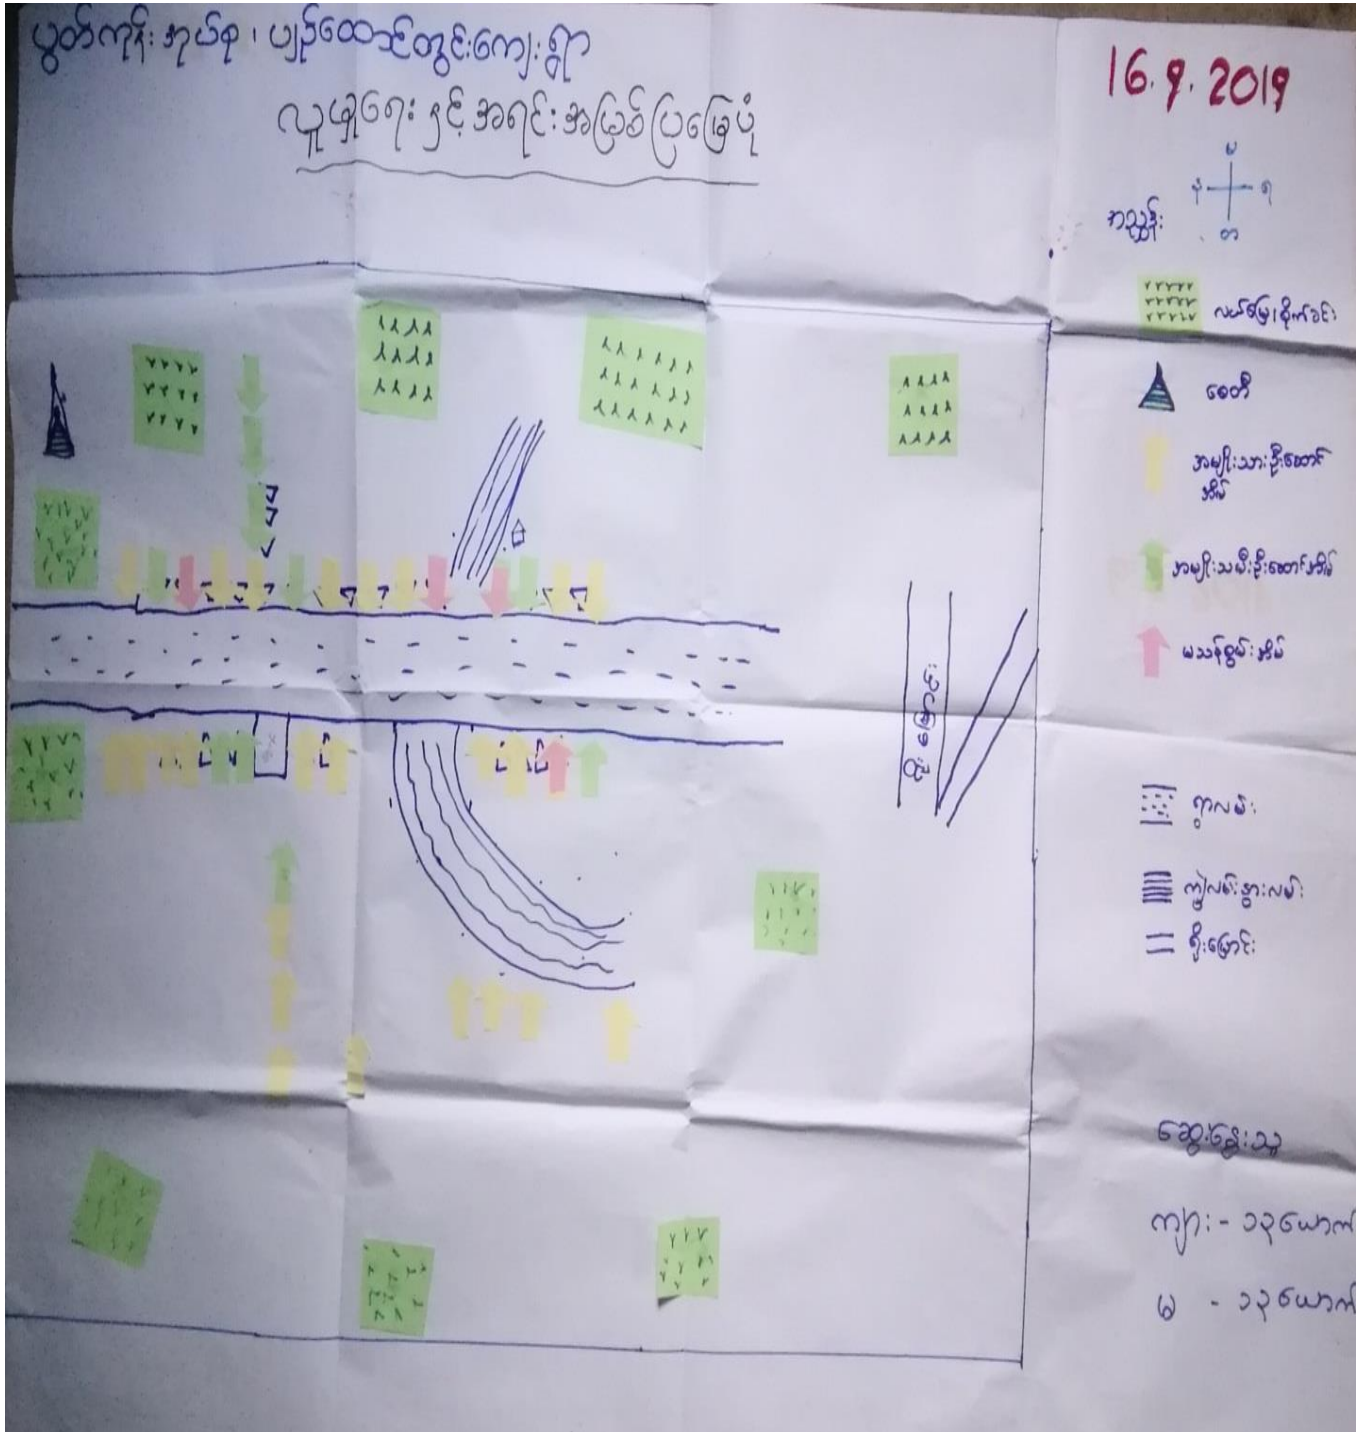 ပွတ်ကုန်းအုပ်စု၊ ပျဉ်ထောင်တွင်းကျေးရွာ
လူမှုရေးနှင့်အရင်းအမြစ်ပြမြေပုံ
16.9.2019
မ
န
ရ
တ
အညွှန်း
လယ်မြေ၊ စိုက်ခင်း
စေတီ
အမျိုးသားဦးဆောင်
အိမ်
အမျိုးသမီးဦးဆောင်အိမ်
မသန်စွမ်းအိမ်
ရိုးမြောင်း
ရွာလမ်း
ကျွဲလမ်းနွားလမ်း
ရိုးမြောင်း
ဆွေးနွေးသူ
ကျား - ၁၃ယောက်
မ - ၁၃ယောက်